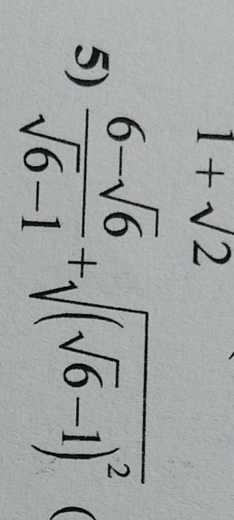 1+√2
5) (6−√6)/(√6−1) + √((√6−1)²)